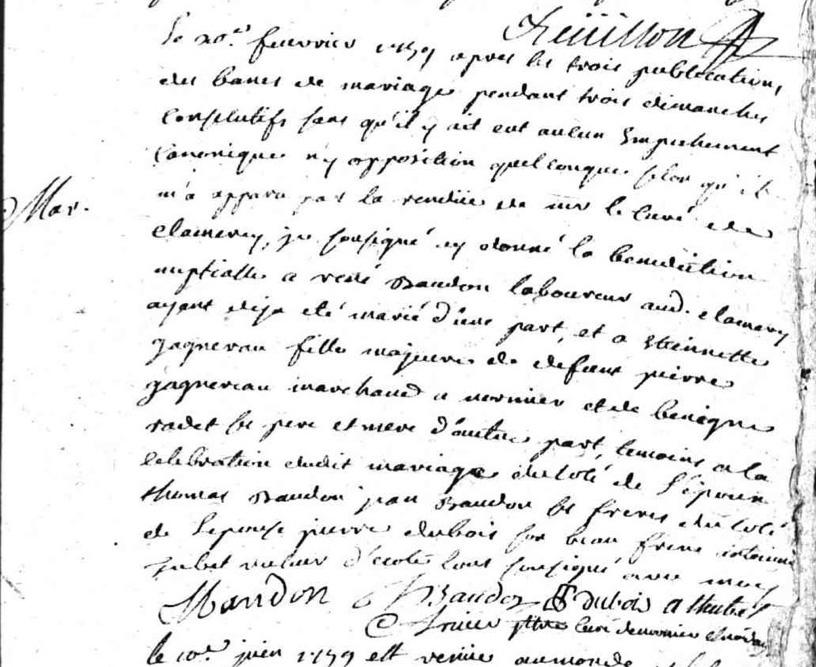 le 20e. feuvrier 1759 apres les trois publications
des bancs de mariage pendant trois dimanches
consecutifs sans qu'il y ait eut aucun Empechement
canonique n'y opposition quelconque selon qu'il
m'a apparu par la rendüe de mr le curé de
clamerey, je soussigné ay donné la benediction
nuptialle a rené Baudon laboureur aud. clamerey
ayant deja eté marié d'une part, et a Etiennette
gagnereau fille majeure de defunt pierre
Mar.
gagnereau marchand a normier et de benigne
radet ses pere et mere d'autre part, temoins a la
celebration dudit mariage du coté de l'epoux
thomas Baudon jean Baudon ses freres du coté
de l'epouse pierre dubois son beau frere
recteur d'ecole sous soussigné avec moy
Baudon P dubois
ptre curé de normier
le 10e. juin 1759 est venüe au monde